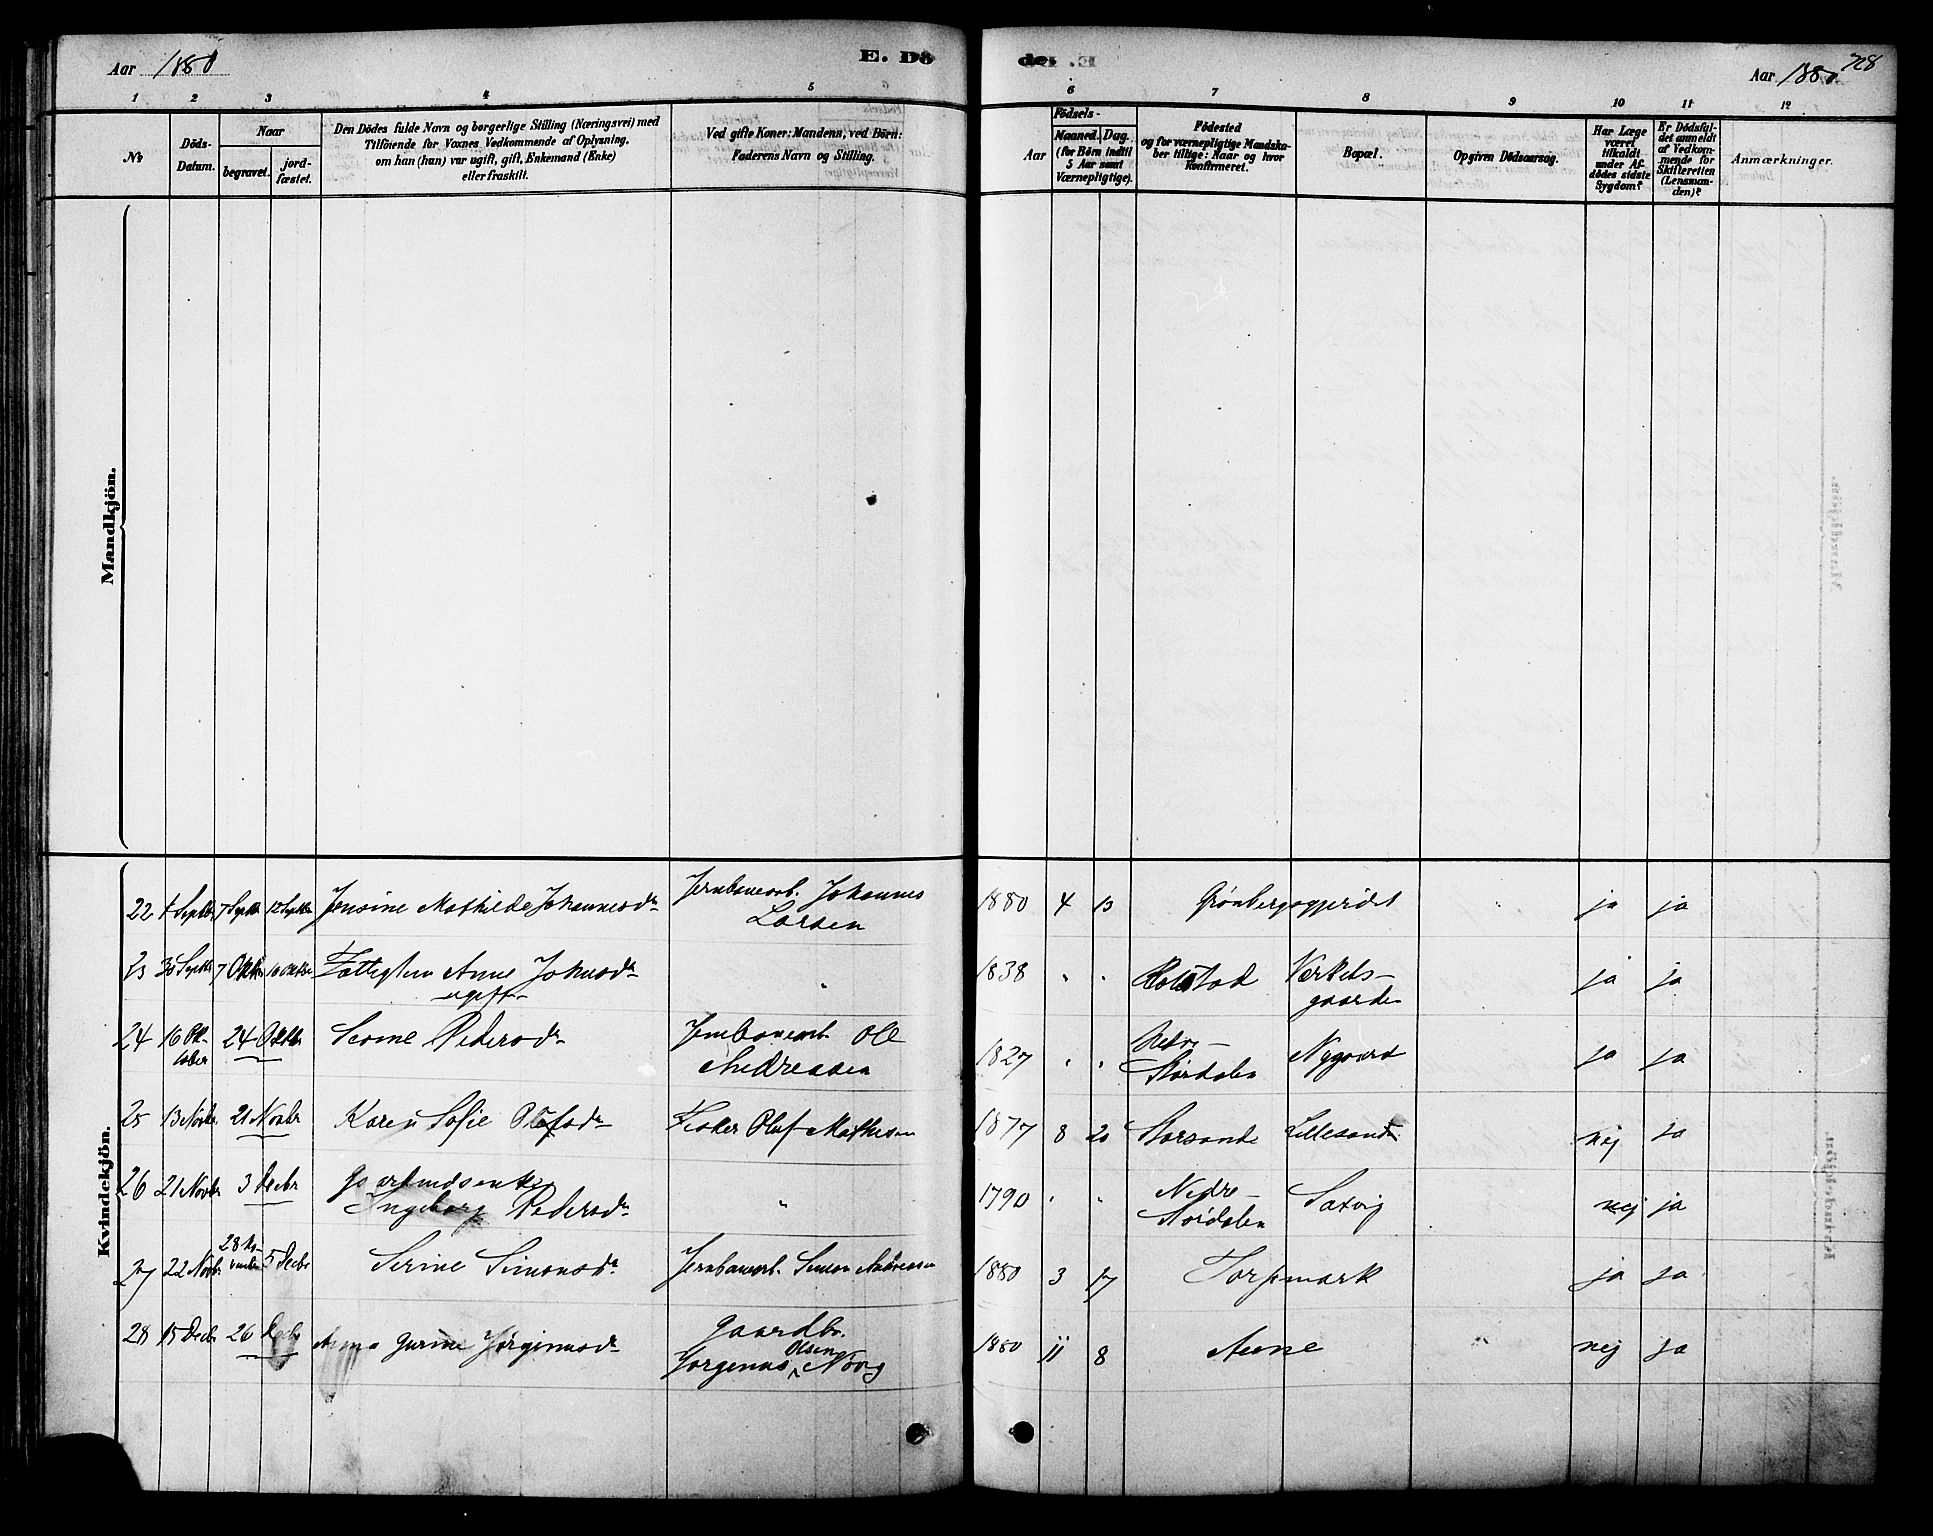 Aar 1880
E. Dö
de. E
Aar 1880.
728
1 2 3 4 5 6 7 8 9 10 11 12
No
Döds-
Datum.
Naar
begravet.
jord-
fæstet.
Den Dödes fulde Navn og borgerlige Stilling (Næringsvei) med
Tilföiende for Voxnes Vedkommende af Oplysning,
om han (hun) var ugift, gift, Enkemand (Enke)
eller fraskilt.
Ved gifte Koner: Mandens, ved Börn:
Faderens Navn og Stilling.
Födsels-
Aar
Maaned. Dag.
(for Börn indtil
5 Aar samt
Værnepligtige).
Födested
og for værnepligtige Mandska-
ber tillige: Naar og hvor
Konfirmeret.
Bopæl.
Opgiven Dödsaarsag.
Har Læge
været
tilkaldt
under Af-
dödes sidste
Sygdom?
Er Dödsfal-
det anmeldt
af Vedkom-
mende for
Skifteretten
(Lensman-
den)?
Anmærkninger.
Mandkjön.
Kvindekjön.
22 1 Septbr 7 Septbr 12 Septbr Jensine Mathilde Johannesdr Jernbanearb. Johannes
Larsen
1880 4 13 Grønbergsgjerdet ja ja
23 30 Septbr 7 Oktbr 10 Oktbr Fattiglem Anne Johnsdr
ugift
"
1838 " " Holstad Verkets-
gaarden
ja ja
24 16 Ok-
tober
24 Oktbr Pedersdr Jernbanearb Ole
Andreasen
1827 " " Nedre-
Stördalen
Nygaard ja ja
25 13 Novbr 21 Novbr Karen Sofie Olafsdr Fisker Olaf Mathisen
1877 8 20 Storsande Lillesand nej ja
26 21 Novbr 3 Decbr Gaardmandsenke
Ingeborg Pedersdr
"
1790 " " Nedre-
Stördalen
Saxvig nej ja
27 22 Novbr 28 No-
vember
5 Decbr Serine Simonsdr Jernbanearb. Simon Andreasen
1880 3 17 Torpmark ja ja
28 15 Decbr 26 Decbr Anna Gurine Jørginusdr Gaardbr.
Jorgenus Olsen
1880 11 8 Aune nej ja